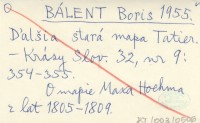 BÁLENT Boris 1955.
Ďalšia stará mapa Tatier.
- Krásy Slov. 32, nr 9:
354-355.
O mapie Maxa Hoehma
z lat 1805-1809.